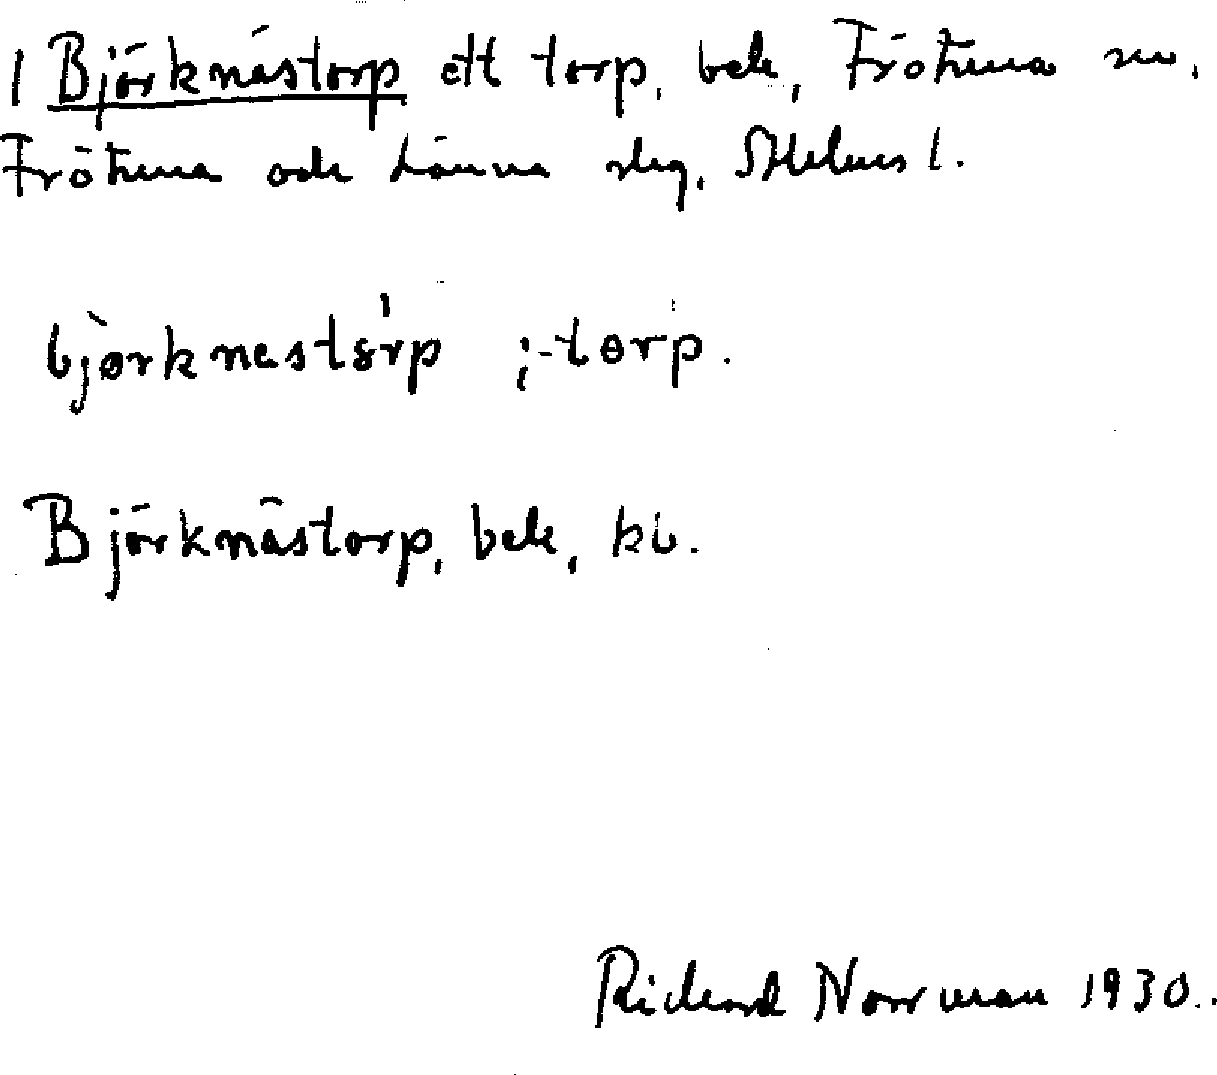 1 Björknästorp ett torp, bek, Frötuna sn,
Frötuna och Länna skg, Sthlms l.
bjørknestørp ; -tørp.
Björknästorp, bek, kb.
Richard Norrman 1930.